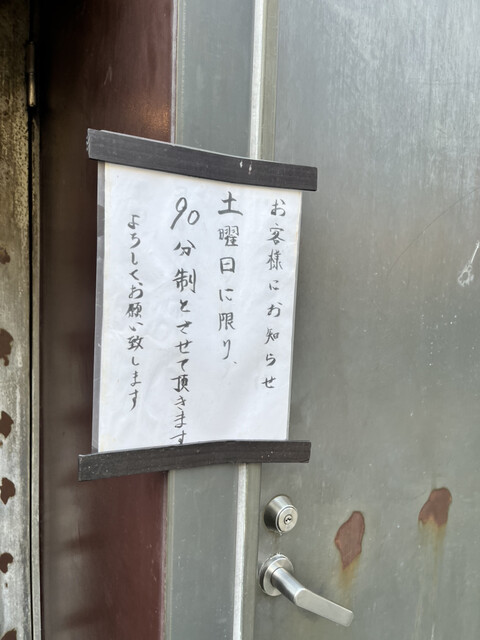 お客様にお知らせ
土曜日に限り、
90分制とさせて頂きます
よろしくお願い致します